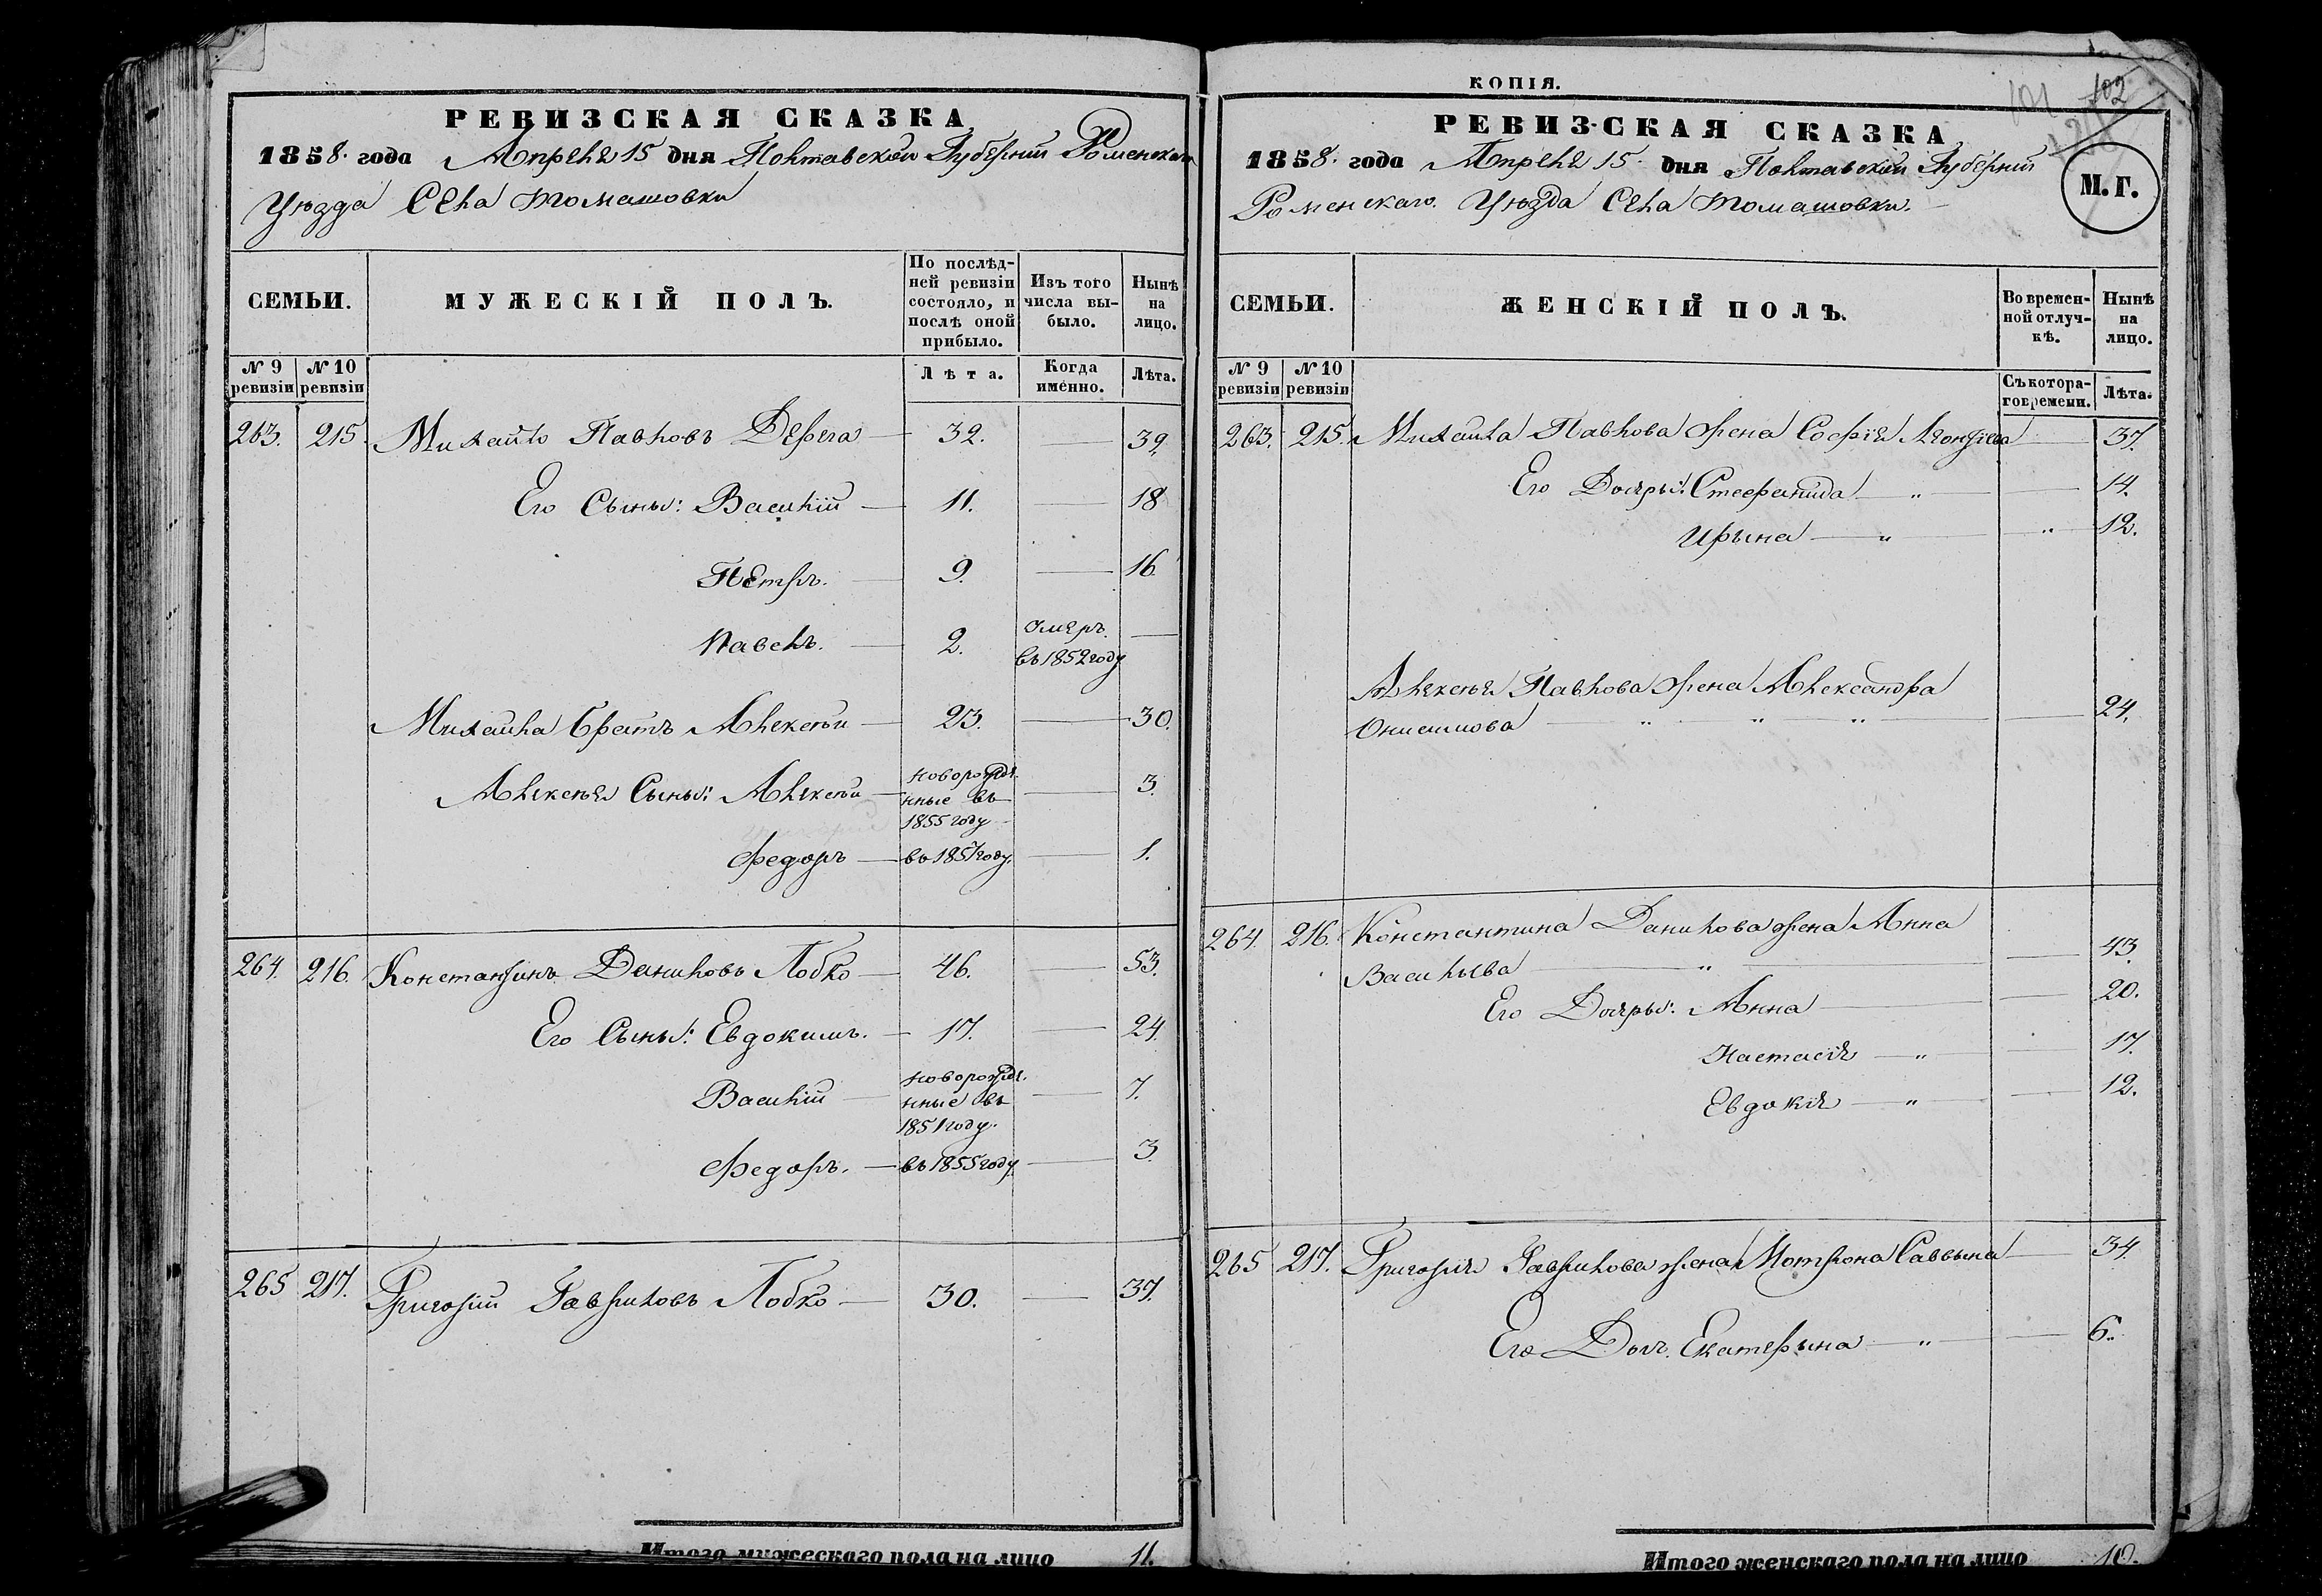 РЕВИЗСКАЯ СКАЗКА
1858. года Апреля 15 дня Полтавской Губернии Роменского
Уѣзда Села Томашовки
СЕМЬИ.
МУЖЕСКІЙ ПОЛЪ.
По послѣд-
ней ревизіи
состояло, и
послѣ оной
прибыло.
Изъ того
числа вы-
было.
Нынѣ
на
лицо.
№ 9
ревизіи
№ 10
ревизіи
Лѣта.
Когда
именно.
Лѣта.
263. 215. Михайло Павловъ Дерега 32. 39.
Его Сыны: Василій 11. 18
Петръ. 9. 16
Павелъ. 2. Умеръ.
въ 1852 году
Михайла братъ Алексѣй 23. 30.
Алексѣя Сыны: Алексѣй новорожде-
нные въ
1855 году 3.
Федоръ въ 1857 году. 1.
264. 216. Константинъ Даниловъ Лобко 46. 53.
Его Сыны: Евдокимъ. 17. 24.
Василій новорожде-
нные въ
1851 году. 7.
Федоръ. въ 1855 году 3.
265 217. Григорій Гавриловъ Лобко 30. 37.
Итого мужескаго пола на лицо 11.
КОПІЯ.
101 102
РЕВИЗСКАЯ СКАЗКА
1858. года Апреля 15. дня Полтавской Губерний
Роменскаго. Уѣзда Села Томашовки.
М. Г.
СЕМЬИ.
ЖЕНСКІЙ ПОЛЪ.
Во времен-
ной отлуч-
кѣ.
Нынѣ
на
лицо.
№ 9
ревизіи
№ 10
ревизіи
Съ котора-
го времени.
Лѣта.
263. 215. Михайла Павлова жена Софія Леонтіева 37.
Его Дочери: Стефанида 14.
Ирына 12.
Алексея Павлова жена Александра
Онисимова 24.
264. 216. Константина Данилова жена Анна
Васильева 43.
Его Дочеры: Анна 20.
Настасія 17.
Евдокія 12.
265 217. Григорія Гаврилова жена Мотрона Саввына 34.
Его Дочь. Екатерына 6.
Итого женскаго пола на лицо 10.